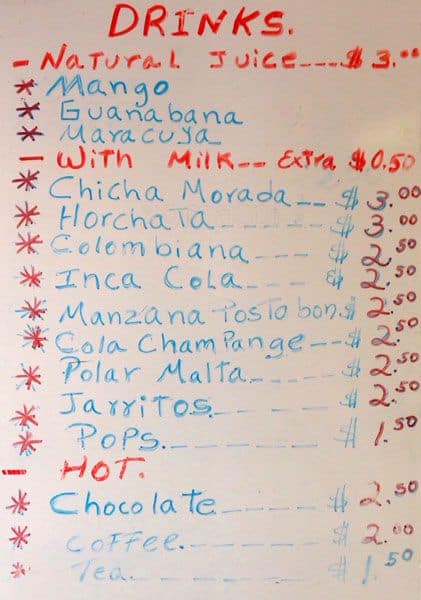 DRINKS.
- Natural Juice---$ 3.00
* Mango
* Guanabana
* Maracuya
- With Milk-- Extra $0.50
* Chicha Morada--$ 3.00
* Horchata-----$ 3.00
* Colombiana---$ 2.50
* Inca Cola---$ 2.50
* Manzana Postobon.$ 2.50
* Cola Champange--$ 2.50
* Polar Malta----$ 2.50
* Jarritos-----$ 2.50
* Pops.------$ 1.50
- HOT.
* Chocolate----$ 2.50
* Coffee.-----$ 2.00
* Tea.------$ 1.50